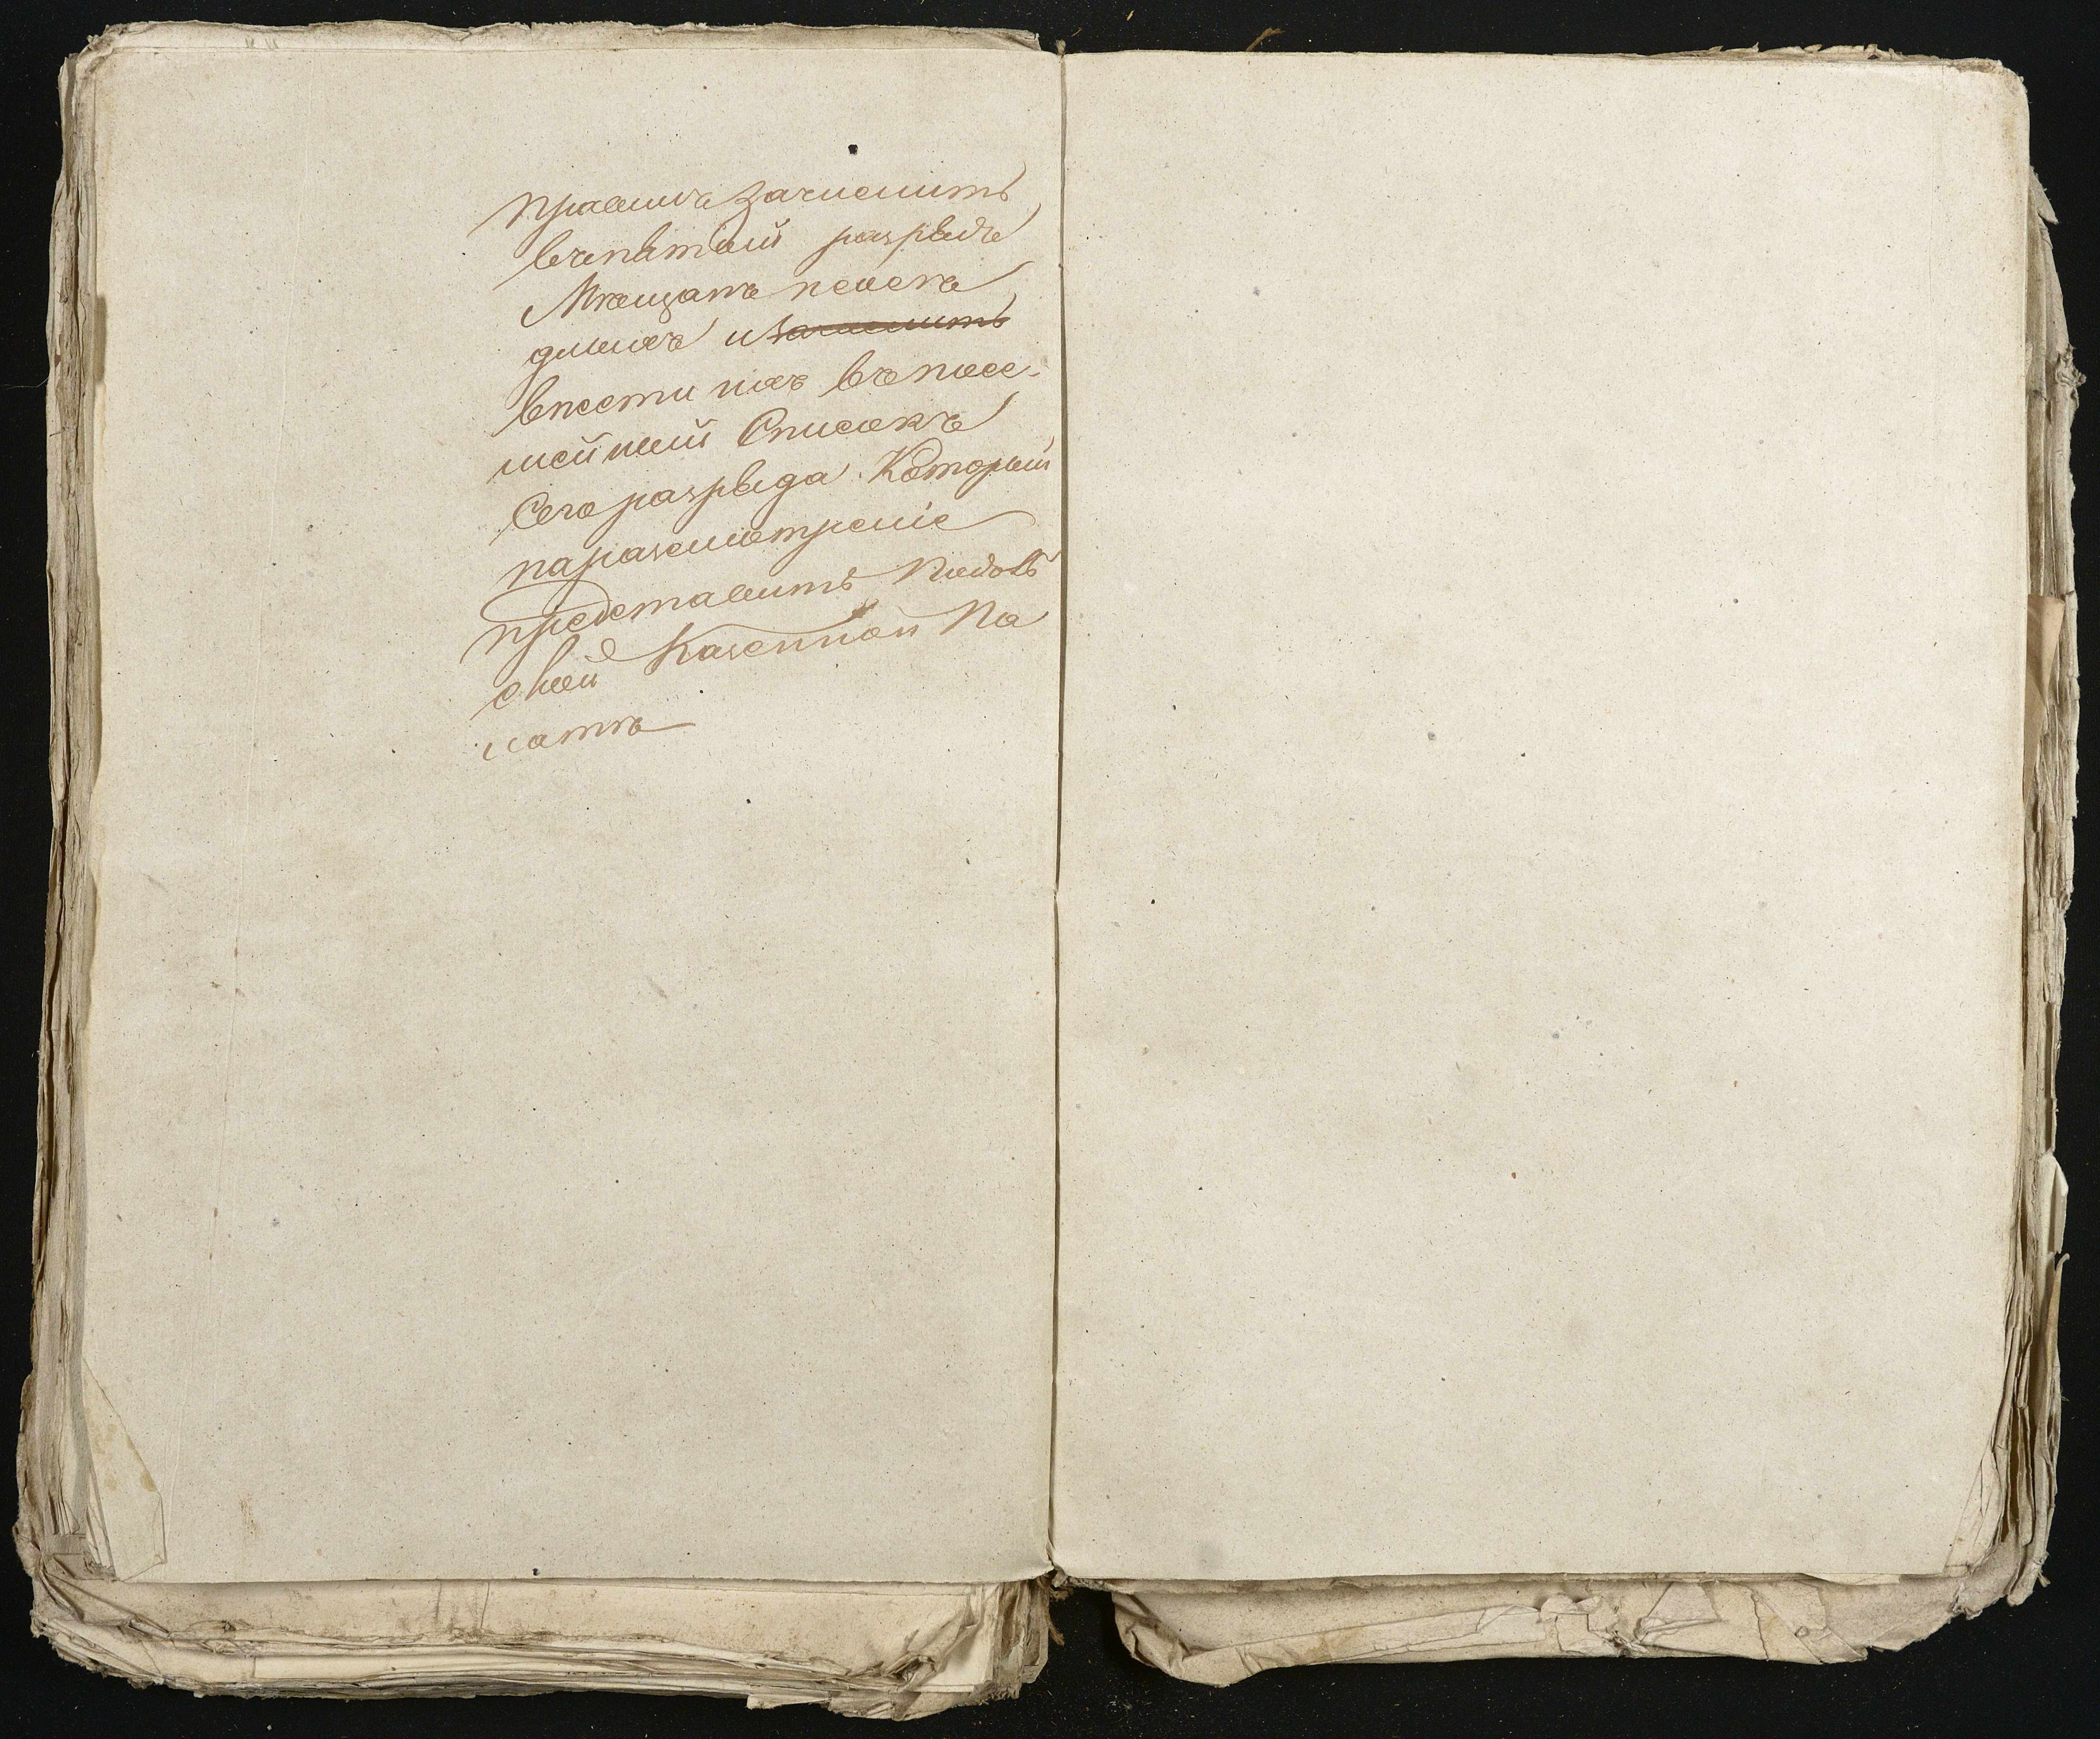 правилъ зачислить
въ пятый разрядъ
Мѣщанъ неосѣ
длыхъ и ~~зачислить~~
внести ихъ въ посе-
мейный Списокъ
Сего разряда. Который
на разсмотреніе
представить Подоль
ской Казенной Па
латѣ